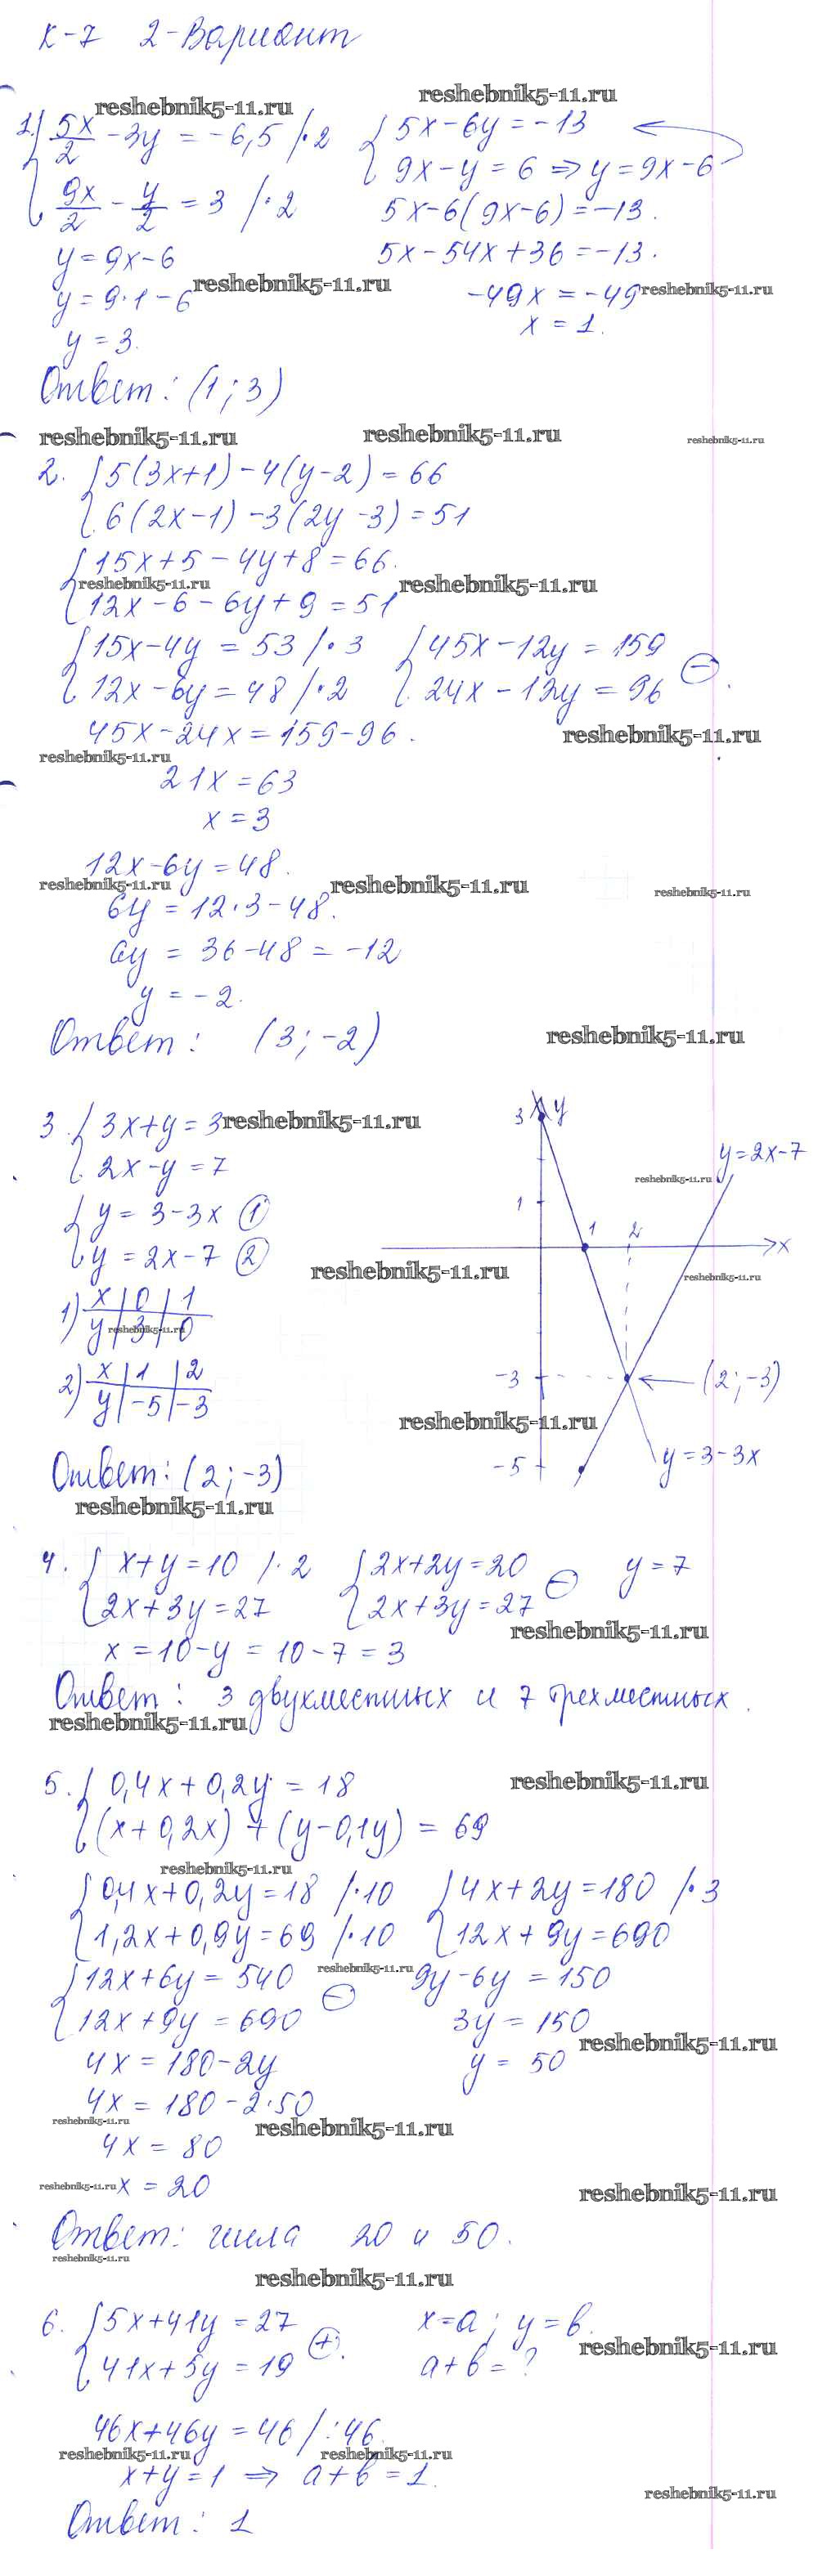 К-7 2-Вариант
reshebnik5-11.ru reshebnik5-11.ru
1) { 5x/2 - 3y = -6,5 /·2 { 5x-6y = -13
9x/2 - y/2 = 3 /·2 9x-y = 6 ⇒ y = 9x-6
5x-6(9x-6) = -13.
y = 9x-6 5x-54x+36 = -13.
reshebnik5-11.ru
y = 9·1-6 -49x = -49 reshebnik5-11.ru
y = 3. x = 1.
Ответ: (1; 3)
reshebnik5-11.ru reshebnik5-11.ru reshebnik5-11.ru
2. { 5(3x+1)-4(y-2) = 66
6(2x-1)-3(2y-3) = 51
{ 15x+5-4y+8 = 66.
reshebnik5-11.ru reshebnik5-11.ru
12x-6-6y+9 = 51
{ 15x-4y = 53 /·3 { 45x-12y = 159
12x-6y = 48 /·2 24x-12y = 96 (-)
45x-24x = 159-96.
reshebnik5-11.ru
reshebnik5-11.ru
21x = 63
x = 3
12x-6y = 48.
reshebnik5-11.ru reshebnik5-11.ru reshebnik5-11.ru
6y = 12·3-48.
6y = 36-48 = -12
y = -2.
Ответ: (3; -2)
reshebnik5-11.ru
3. { 3x+y = 3 reshebnik5-11.ru
2x-y = 7
{ y = 3-3x (1)
y = 2x-7 (2)
reshebnik5-11.ru
1) x | 0 | 1
y | 3 | 0
reshebnik5-11.ru
2) x | 1 | 2
y | -5 | -3
Ответ: (2; -3)
reshebnik5-11.ru
3 y
y = 2x-7
reshebnik5-11.ru
1
1 2
x
reshebnik5-11.ru
-3 (2; -3)
reshebnik5-11.ru
-5 y = 3-3x
4. { x+y = 10 /·2 { 2x+2y = 20 y = 7
2x+3y = 27 2x+3y = 27 (-)
reshebnik5-11.ru
x = 10-y = 10-7 = 3
Ответ: 3 двухместных и 7 трехместных.
reshebnik5-11.ru
5. { 0,4x+0,2y = 18 reshebnik5-11.ru
(x+0,2x)+(y-0,1y) = 69
reshebnik5-11.ru
{ 0,4x+0,2y = 18 /·10 { 4x+2y = 180 /·3
1,2x+0,9y = 69 /·10 12x+9y = 690
{ 12x+6y = 540 reshebnik5-11.ru 9y-6y = 150
12x+9y = 690 (-) 3y = 150
reshebnik5-11.ru
4x = 180-2y y = 50
4x = 180-2·50
reshebnik5-11.ru reshebnik5-11.ru
4x = 80
reshebnik5-11.ru x = 20 reshebnik5-11.ru
Ответ: числа 20 и 50.
reshebnik5-11.ru
reshebnik5-11.ru
6. { 5x+41y = 27 x=a; y=b.
41x+5y = 19 (+). a+b = ?
reshebnik5-11.ru
46x+46y = 46 /:46.
reshebnik5-11.ru reshebnik5-11.ru
x+y = 1 ⇒ a+b = 1.
reshebnik5-11.ru
Ответ: 1